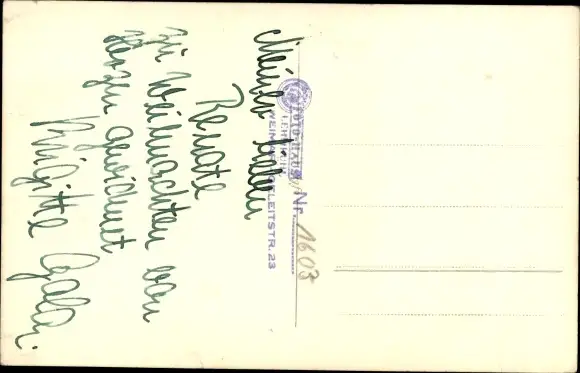 Meiner lieben
Renate
zu Weihnachten von
Herzen gewidmet
Brigitte
FOTO-
WEIMAR, GELEITSTR. 23
Nr. 1603